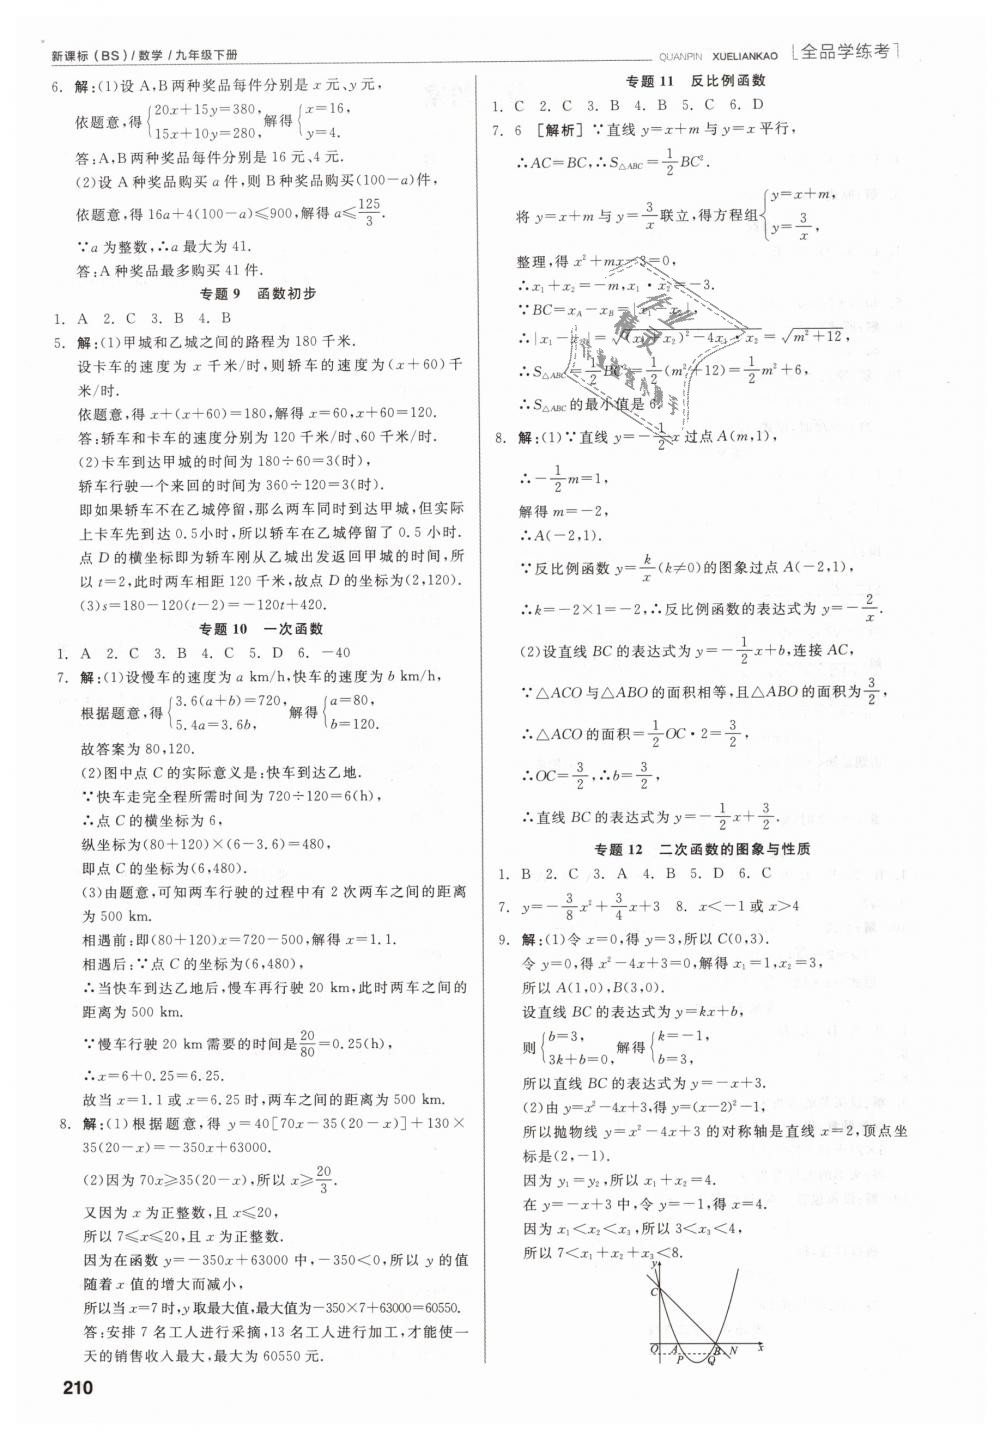 新课标(BS)/数学/九年级下册
QUANPIN XUELIANKAO 全品学练考
6. 解:(1)设 A,B 两种奖品每件分别是 x 元、y 元,
依题意,得{20x+15y=380, 15x+10y=280, 解得{x=16, y=4.
答:A,B 两种奖品每件分别是 16 元、4 元.
(2)设 A 种奖品购买 a 件,则 B 种奖品购买(100-a)件,
依题意,得 16a+4(100-a)≤900,解得 a≤125/3.
∵a 为整数,∴a 最大为 41.
答:A 种奖品最多购买 41 件.
专题 9 函数初步
1. A 2. C 3. B 4. B
5. 解:(1)甲城和乙城之间的路程为 180 千米.
设卡车的速度为 x 千米/时,则轿车的速度为(x+60)千
米/时.
依题意,得 x+(x+60)=180,解得 x=60,x+60=120.
答:轿车和卡车的速度分别为 120 千米/时、60 千米/时.
(2)卡车到达甲城的时间为 180÷60=3(时),
轿车行驶一个来回的时间为 360÷120=3(时).
即如果轿车不在乙城停留,那么两车同时到达甲城,但实际
上卡车先到达 0.5小时,所以轿车在乙城停留了 0.5 小时.
点 D 的横坐标即为轿车刚从乙城出发返回甲城的时间,所
以 t=2,此时两车相距 120 千米,故点 D 的坐标为(2,120).
(3)s=180-120(t-2)=-120t+420.
专题 10 一次函数
1. A 2. C 3. B 4. C 5. D 6. -40
7. 解:(1)设慢车的速度为 a km/h,快车的速度为 b km/h,
根据题意,得{3.6(a+b)=720, 5.4a=3.6b, 解得{a=80, b=120.
故答案为 80,120.
(2)图中点 C 的实际意义是:快车到达乙地.
∵快车走完全程所需时间为 720÷120=6(h),
∴点 C 的横坐标为 6,
纵坐标为(80+120)×(6-3.6)=480,
即点 C 的坐标为(6,480).
(3)由题意,可知两车行驶的过程中有 2 次两车之间的距离
为 500 km.
相遇前:即(80+120)x=720-500,解得 x=1.1.
相遇后:∵点 C 的坐标为(6,480),
∴当快车到达乙地后,慢车再行驶 20 km,此时两车之间的
距离为 500 km.
∵慢车行驶 20 km 需要的时间是20/80=0.25(h),
∴x=6+0.25=6.25.
故当 x=1.1 或 x=6.25 时,两车之间的距离为 500 km.
8. 解:(1)根据题意,得 y=40[70x-35(20-x)]+130×
35(20-x)=-350x+63000.
(2)因为 70x≥35(20-x),所以 x≥20/3.
又因为 x 为正整数,且 x≤20,
所以 7≤x≤20,且 x 为正整数.
因为在函数 y=-350x+63000 中,-350<0,所以 y 的值
随着 x 值的增大而减小,
所以当 x=7 时,y 取最大值,最大值为-350×7+63000=60550.
答:安排 7 名工人进行采摘,13 名工人进行加工,才能使一
天的销售收入最大,最大为 60550 元.
210
专题 11 反比例函数
1. C 2. C 3. B 4. B 5. C 6. D
7. 6 [解析]∵直线 y=x+m 与 y=x 平行,
∴AC=BC,∴S△ABC=1/2BC².
将 y=x+m 与 y=3/x联立,得方程组{y=x+m, y=3/x,
整理,得 x²+mx-3=0,
∴x₁+x₂=-m,x₁·x₂=-3.
∵BC=xA-xB=|x₁-x₂|,
∴|x₁-x₂|=√(x₁+x₂)²-4x₁·x₂=√m²+12,
∴S△ABC=1/2BC²=1/2(m²+12)=1/2m²+6,
∴S△ABC的最小值是 6.
8. 解:(1)∵直线 y=-1/2x 过点 A(m,1),
∴-1/2m=1,
解得 m=-2,
∴A(-2,1).
∵反比例函数 y=k/x(k≠0)的图象过点 A(-2,1),
∴k=-2×1=-2,∴反比例函数的表达式为 y=-2/x.
(2)设直线 BC 的表达式为 y=-1/2x+b,连接 AC,
∵△ACO 与△ABO 的面积相等,且△ABO 的面积为3/2,
∴△ACO 的面积=1/2OC·2=3/2,
∴OC=3/2,∴b=3/2,
∴直线 BC 的表达式为 y=-1/2x+3/2.
专题 12 二次函数的图象与性质
1. B 2. C 3. A 4. B 5. D 6. C
7. y=-3/8x²+3/4x+3 8. x<-1 或 x>4
9. 解:(1)令 x=0,得 y=3,所以 C(0,3).
令 y=0,得 x²-4x+3=0,解得 x₁=1,x₂=3,
所以 A(1,0),B(3,0).
设直线 BC 的表达式为 y=kx+b,
则{b=3, 3k+b=0, 解得{k=-1, b=3,
所以直线 BC 的表达式为 y=-x+3.
(2)由 y=x²-4x+3,得 y=(x-2)²-1,
所以抛物线 y=x²-4x+3 的对称轴是直线 x=2,顶点坐
标是(2,-1).
因为 y₁=y₂,所以 x₁+x₂=4.
在 y=-x+3 中,令 y=-1,得 x=4.
因为 x₁<x₂<x₃,所以 3<x₃<4,
所以 7<x₁+x₂+x₃<8.
y
C
O A B N x
P Q